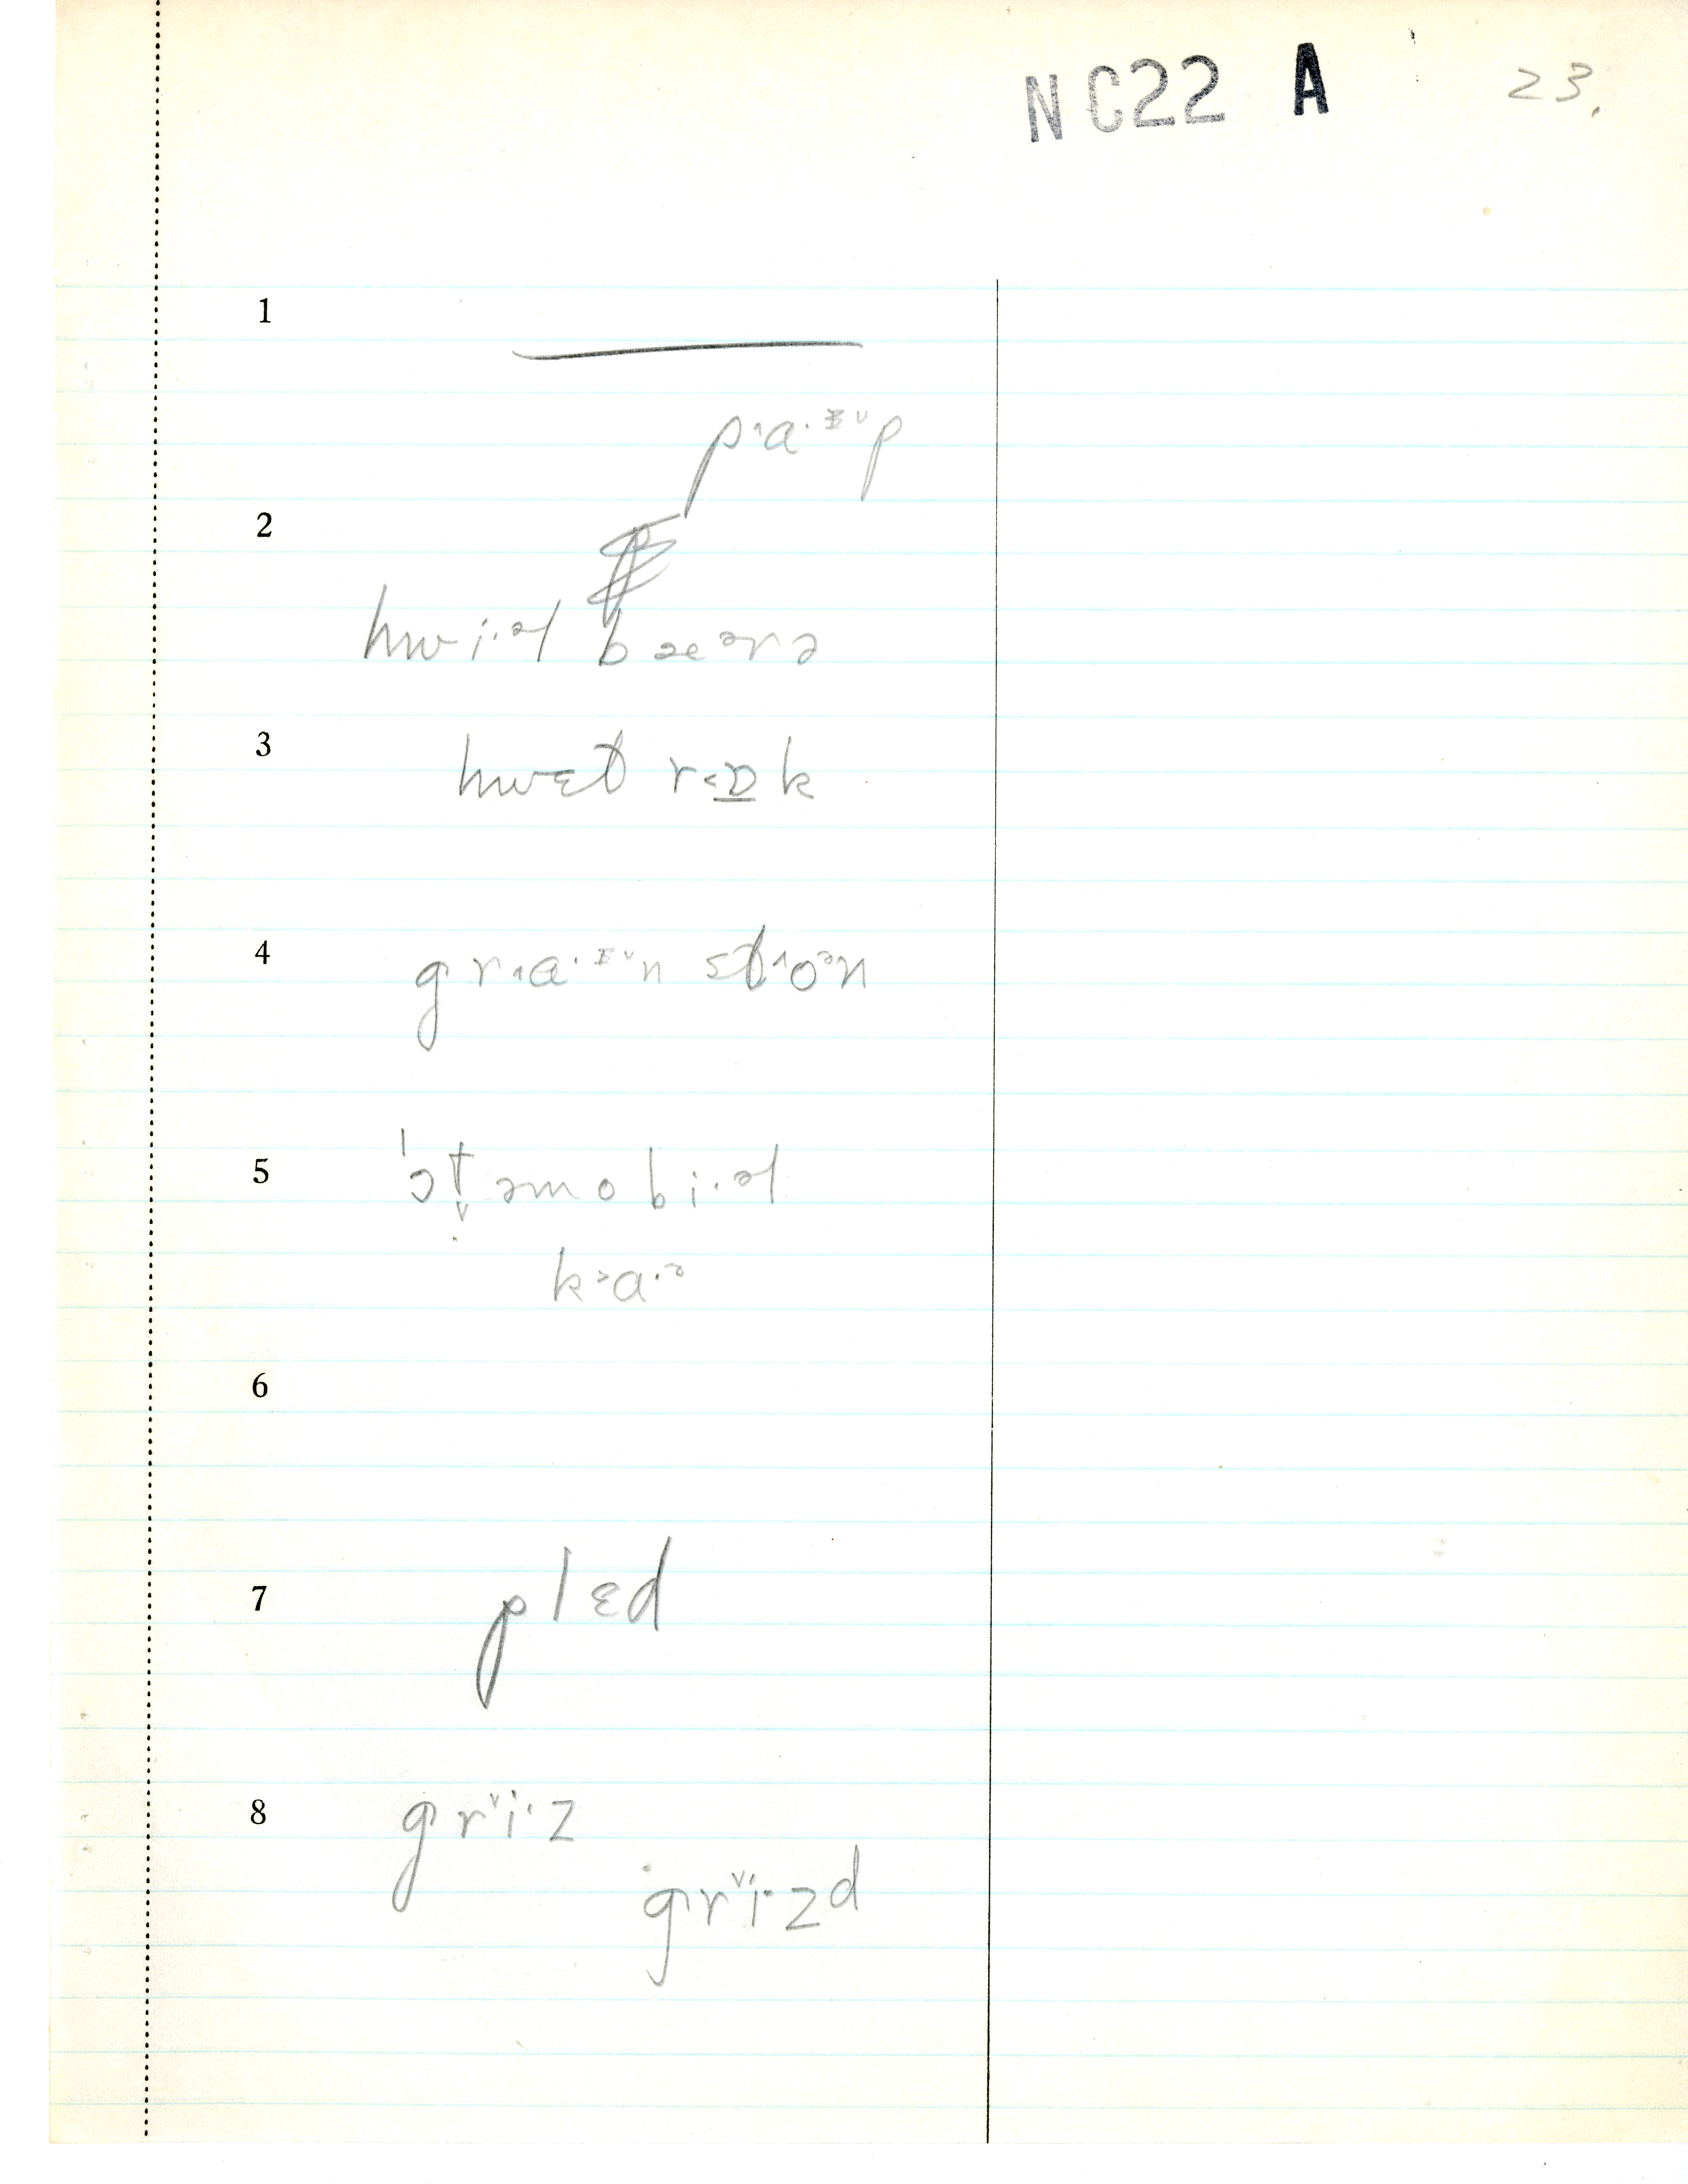 NC22 A 23.
1
p˄a·ᶦ˅p
2
hwi·əl bæərə
3
hwɛt r<ɒ̲k
4
gr˄a·ᶦ˅n st˄oən
5
'ɔt̬əmobi·əl
k>a·ə
6
7
plɛd
8
gr˅i·z
gr˅i·zd